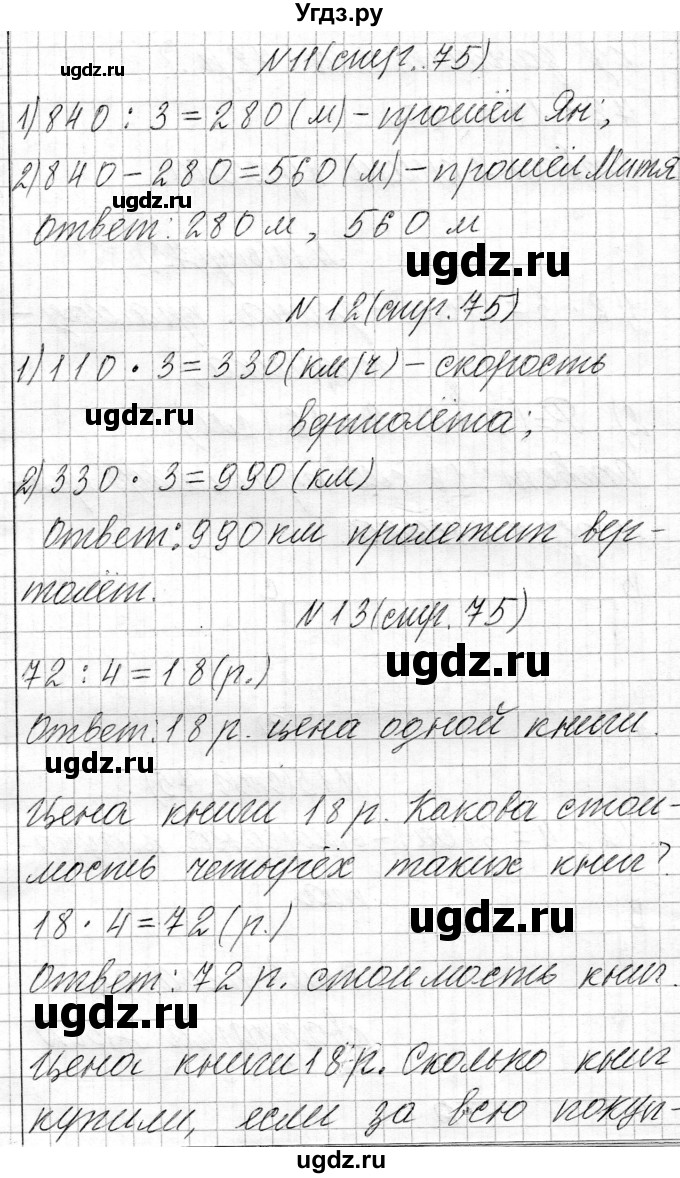 Угдз.ру
N11(стр. 75)
1) 840 : 3 = 280 (м) - прошёл Ян;
2) 840 - 280 = 560 (м) - прошёл Митя
Ответ: 280 м, 560 м
N 12 (стр. 75)
1) 110 · 3 = 330 (км/ч) - скорость
вертолёта;
2) 330 · 3 = 990 (км)
Ответ: 990 км пролетит вер-
толёт.
N 13 (стр. 75)
72 : 4 = 18 (р.)
Ответ: 18 р. цена одной книги.
Цена книги 18 р. Какова стои-
мость четырёх таких книг?
18 · 4 = 72 (р.)
Ответ: 72 р. стоимость книг.
Цена книги 18 р. Сколько книг
купили, если за всю покуп-
ugdz.ru
ugdz.ru
ugdz.ru
ugdz.ru
ugdz.ru
ugdz.ru
ugdz.ru
ugdz.ru
ugdz.ru